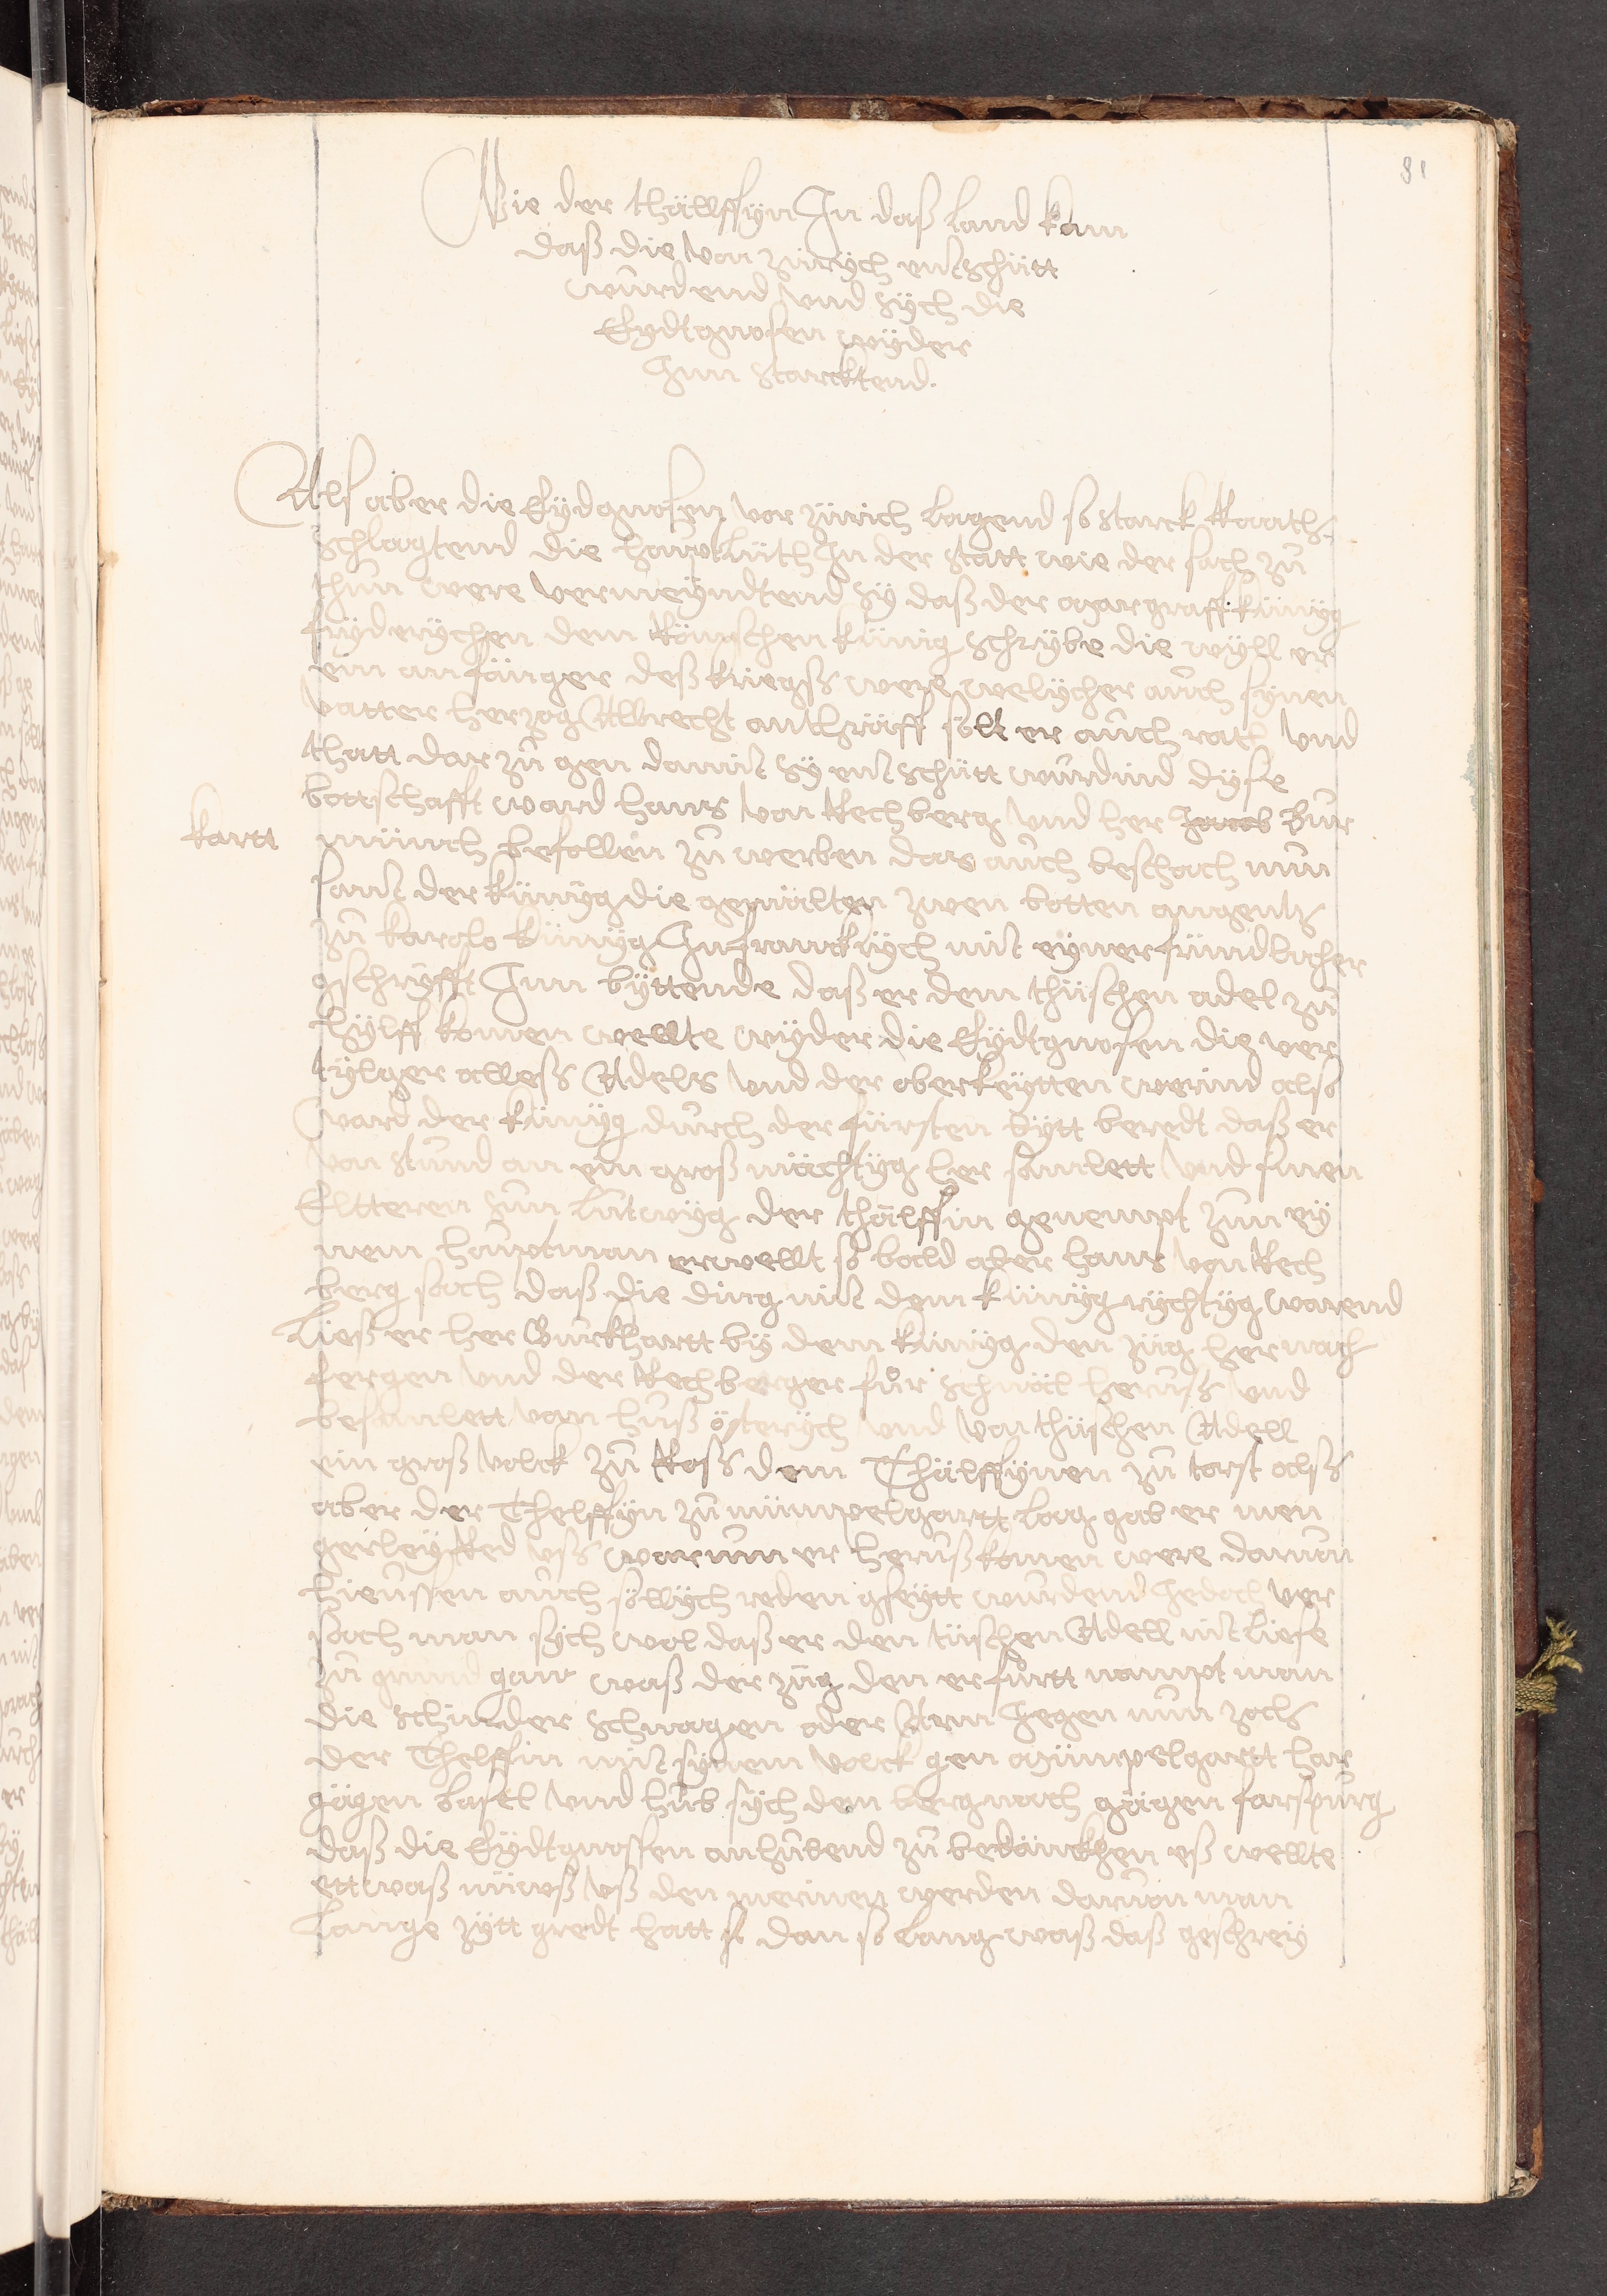 81
Wie der thällffyn In daß land kam
daß die von zürych entschütt
wurdend vnd sych die
Eydtgnosen wyder
Inn starcktend.
Als aber die Eydgnosen vor zürich lagend so starck Raath
schlagtend die hauptlüth In der statt wie der sach zů
thun were vermeyndtend sy daß der margraff künyg
fryderychen dem Römschen künig schrybe die wyll er
ein anfänger deß kriegß were welycher auch synen
vatter herzog Albrecht antträff sölt er auch rath vnd
thatt dar zů gen damit sy entschütt wurdind dyse
bottschafft ward hans von Rechberg vnd her Jacob Bur
kartt münch befollen zů werben das auch beschach nun
sant der künyg die gemälten zwen botten angentz
zů karolo künyg In franckrych mit eyner früntlicher
gschryfft Inn byttende daß er dem thüschen adel zů
hylff komen wellte wyder die Eydtgnosen die ver
tylger alleß Adels vnd der oberkeytten werind also
ward der künyg durch der fürsten bytt beredt daß er
von stund an ein groß mächtyg her samlett vnd sinen
Eltteren sun lutwyg der thälffin genempt zum ey
nem houptman erwellt so bald aber hans von Rech
berg sach daß die ding mit dem künyg rychtyg warend
ließ er her Burckhartt by dem künyg den züg hernach
fergen vnd der Rechberger fůr schnäl heruß vnd
besamlett vom huß österych vnd von thüschen Adell
ein groß volck zů Roß dem Thälffynen zů trost alß
aber der Thelffyn zů mümpelgartt lag gab er men
gerley Red vß warum er heruß komen were darum
hieussen auch söllych reden gseytt wurdend Jedoch ver
sach man sych wol daß er den tüschen Adell nit liese
zů grund gan waß der züg den er fůrtt nampt man
die schinder schnagen oder Arm Jegen nun zoch
der Thelffin mit synem volck gen mümpelgartt har
gägen basel vnd hůb sych dem berg nach gägen farspurg
daß die Eydtgnossen anhubend zů bedänckhen eß wellte
ettwaß nüwß vß den merinen werden daruon man
lange zytt gredt hatt si dan so lang waß daß geschrey